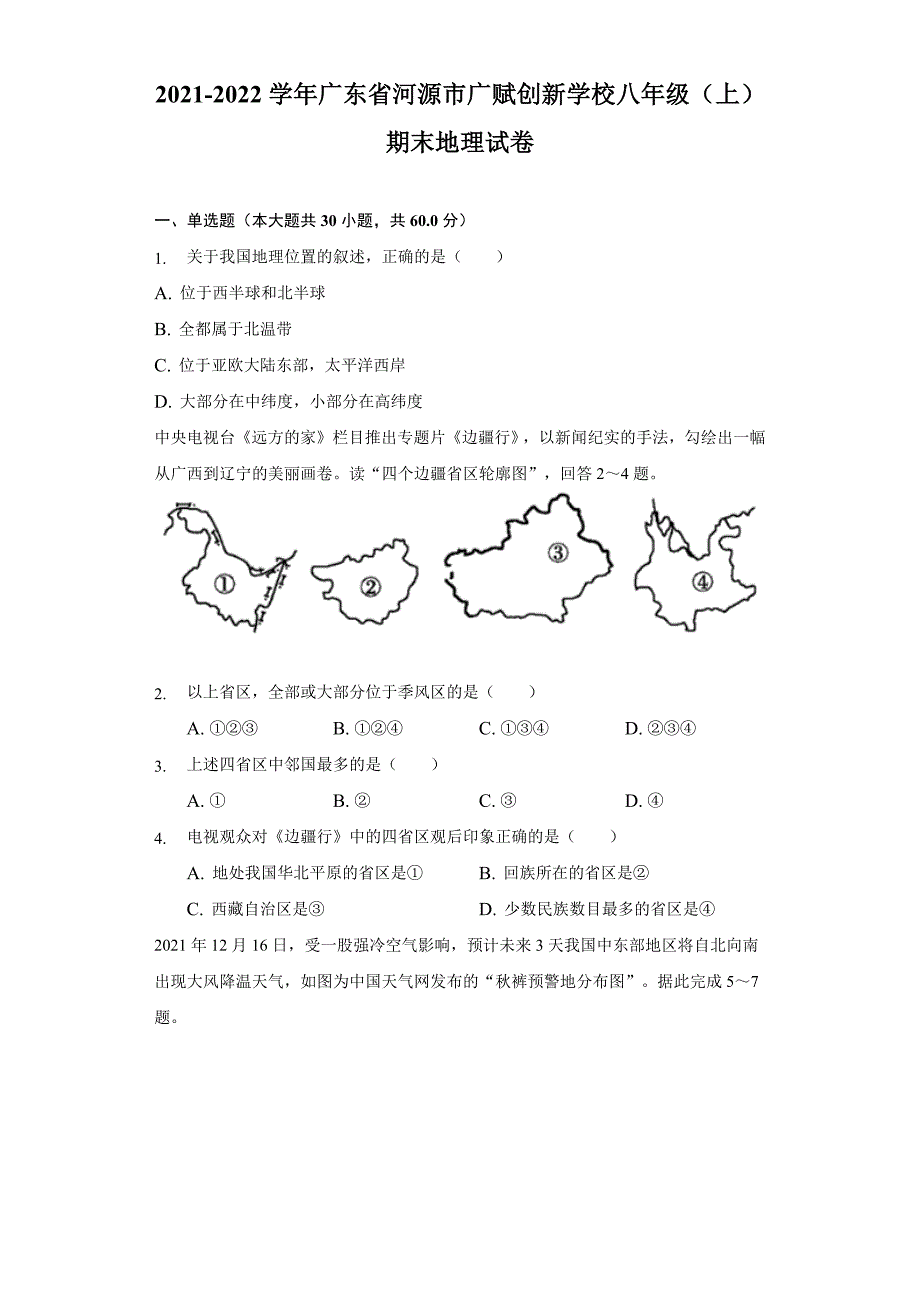 2021-2022 学年广东省河源市广赋创新学校八年级（上）
期末地理试卷
一、单选题（本大题共 30 小题，共 60.0 分）
1. 关于我国地理位置的叙述，正确的是（　　）
A. 位于西半球和北半球
B. 全都属于北温带
C. 位于亚欧大陆东部，太平洋西岸
D. 大部分在中纬度，小部分在高纬度
中央电视台《远方的家》栏目推出专题片《边疆行》，以新闻纪实的手法，勾绘出一幅
从广西到辽宁的美丽画卷。读“四个边疆省区轮廓图”，回答 2～4 题。
① ② ③ ④
2. 以上省区，全部或大部分位于季风区的是（　　）
A. ①②③ B. ①②④ C. ①③④ D. ②③④
3. 上述四省区中邻国最多的是（　　）
A. ① B. ② C. ③ D. ④
4. 电视观众对《边疆行》中的四省区观后印象正确的是（　　）
A. 地处我国华北平原的省区是① B. 回族所在的省区是②
C. 西藏自治区是③ D. 少数民族数目最多的省区是④
2021 年 12 月 16 日，受一股强冷空气影响，预计未来 3 天我国中东部地区将自北向南
出现大风降温天气，如图为中国天气网发布的“秋裤预警地分布图”。据此完成 5～7
题。